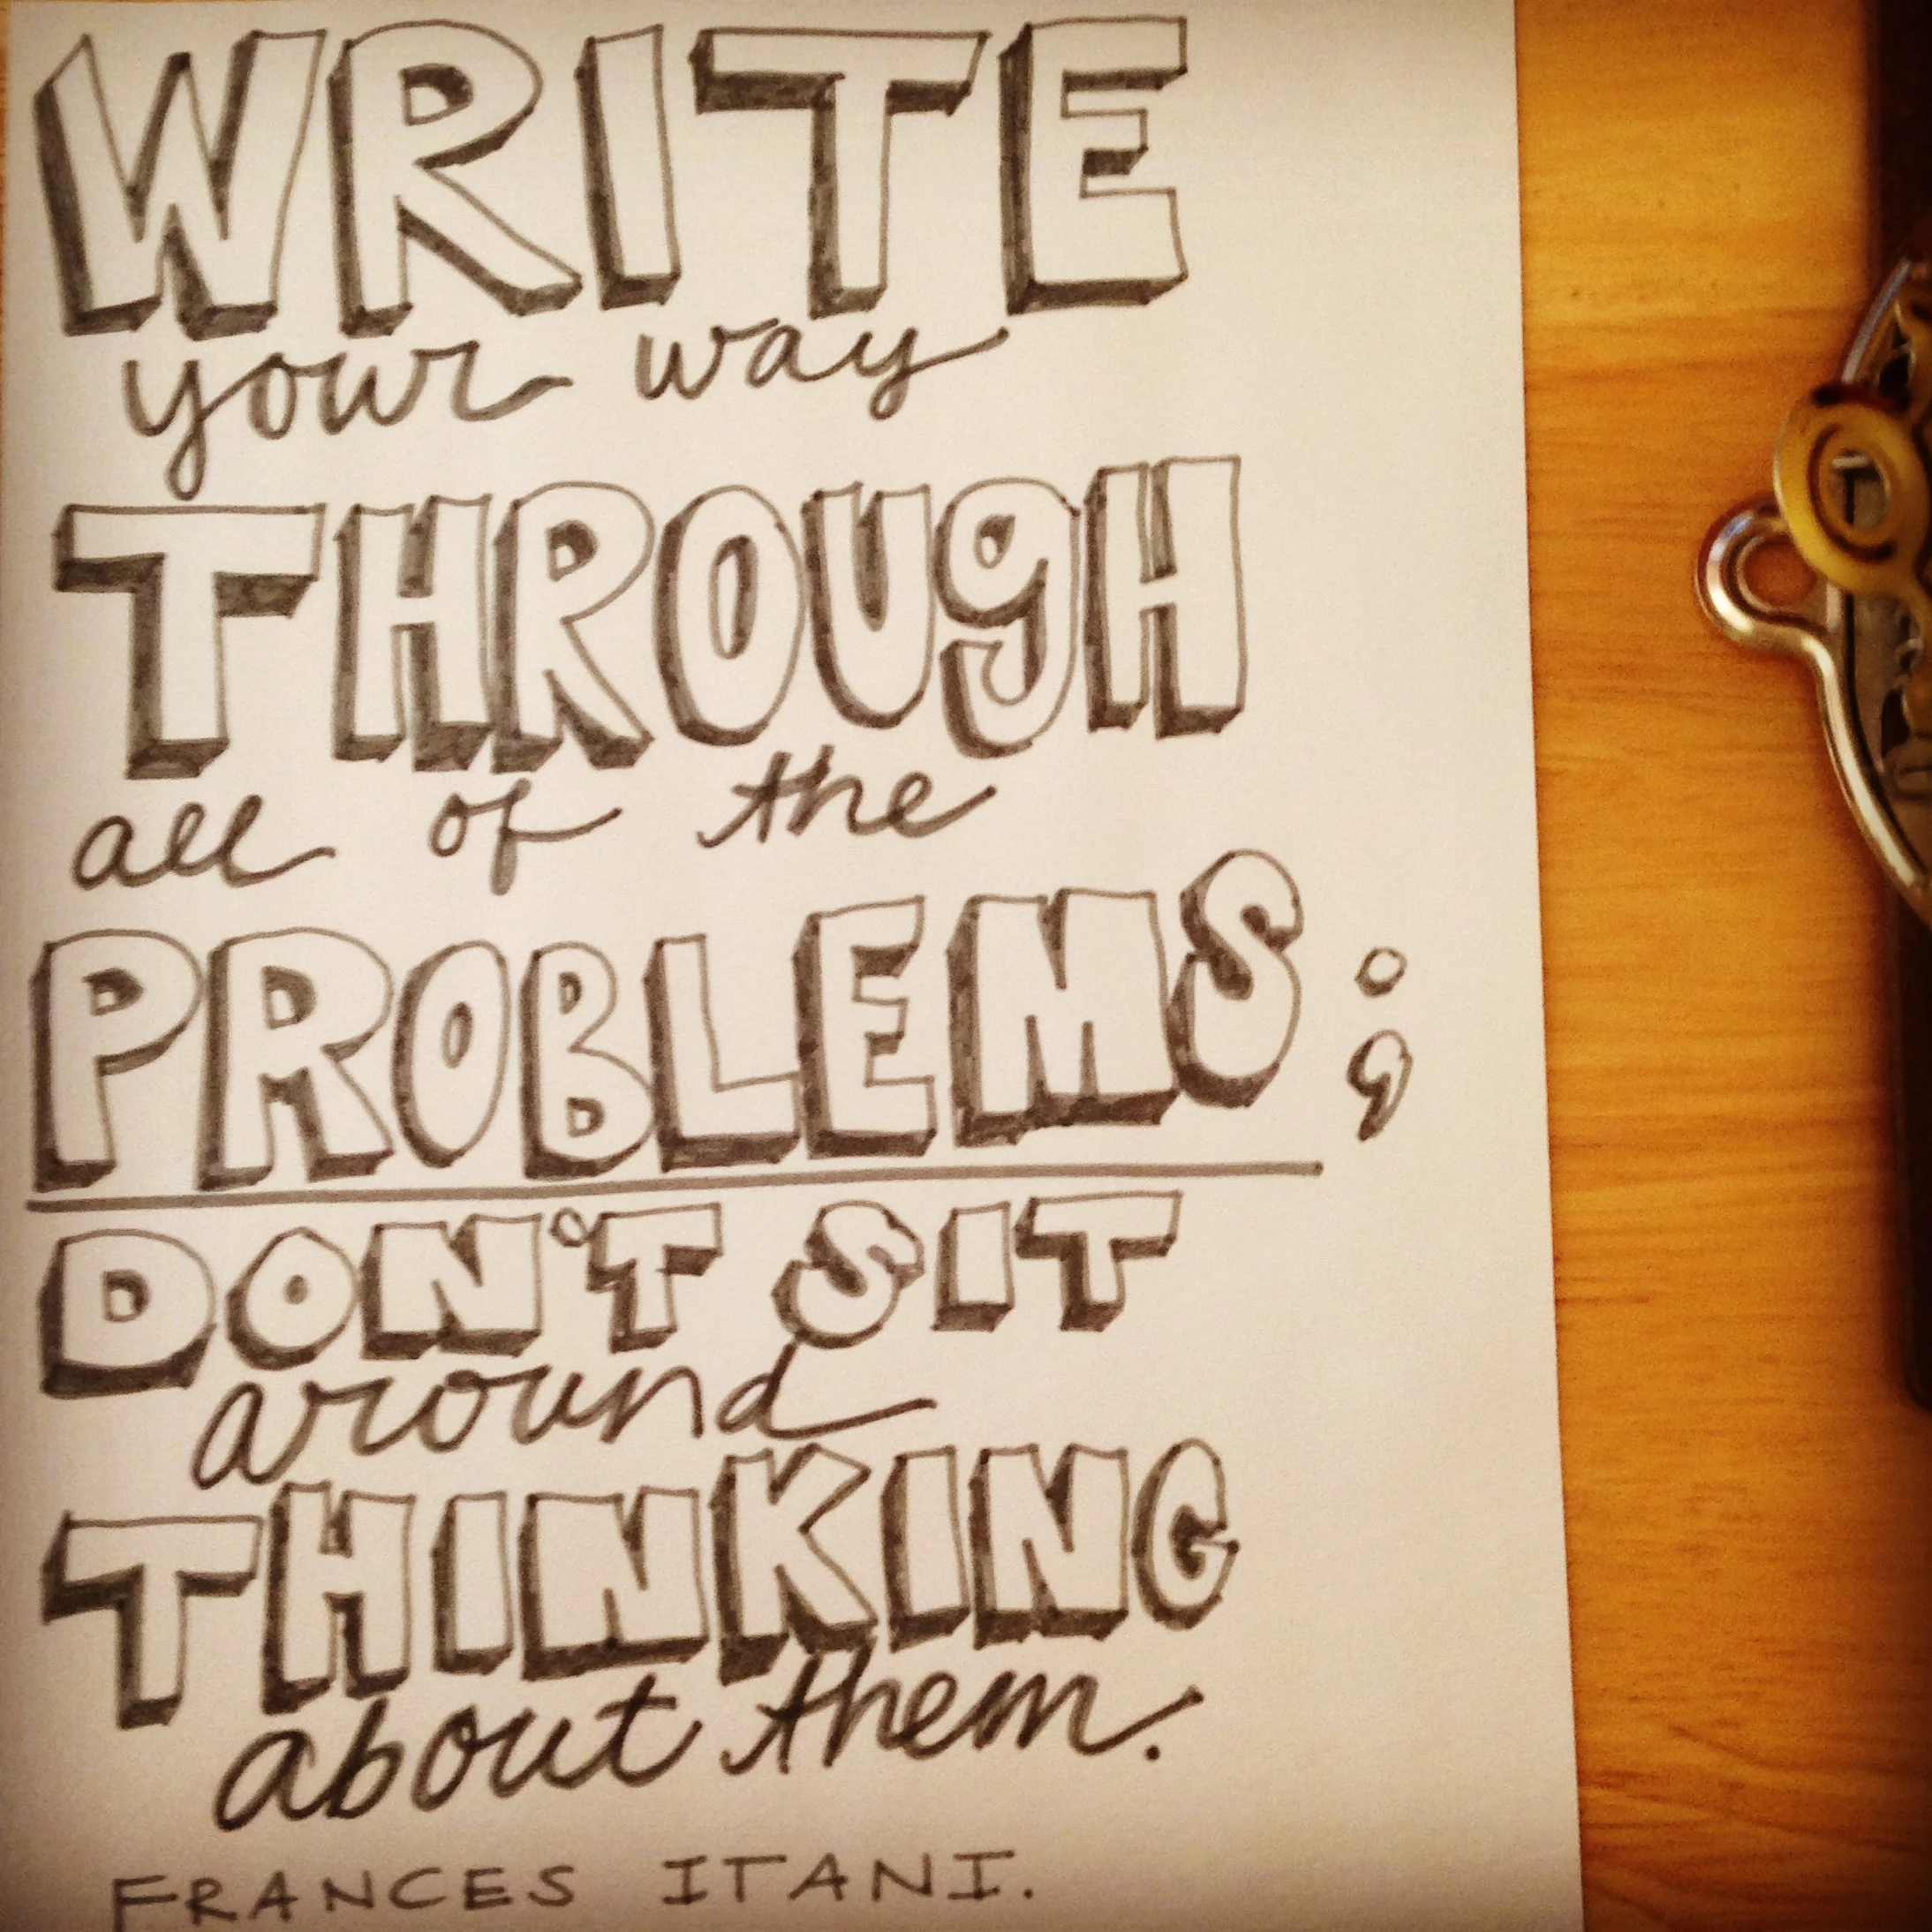 WRITE
your way
THROUgH
all of the
PROBLEMS;
DON'T SIT
around
THINKING
about them.
FRANCES ITANI.